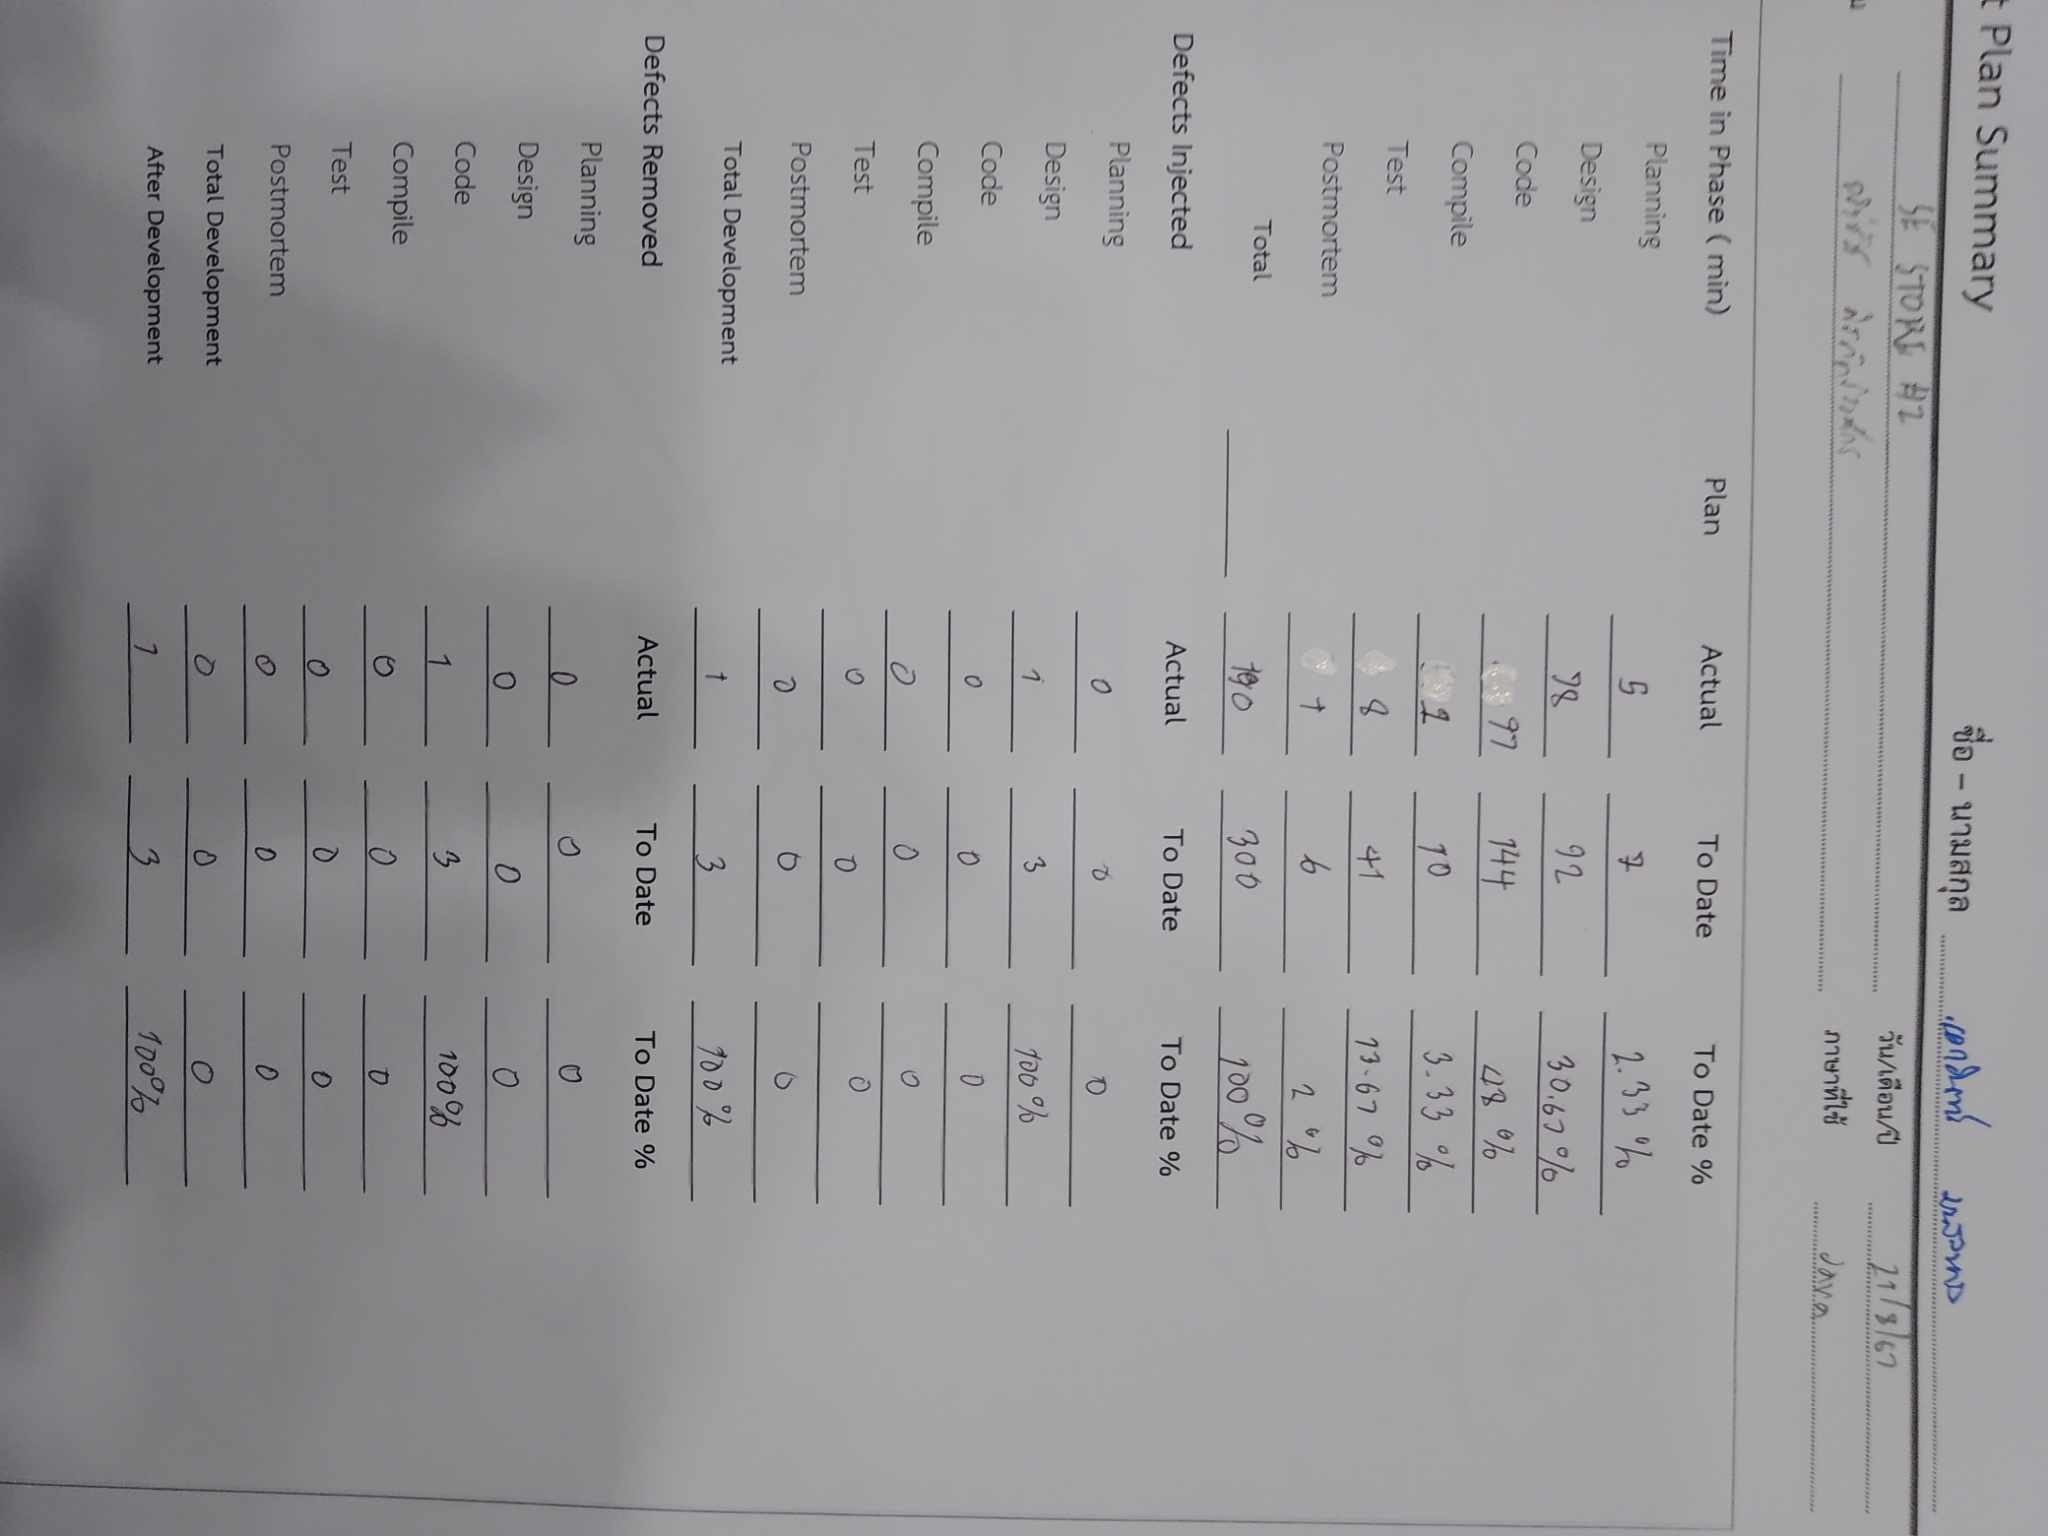 t Plan Summary ชื่อ – นามสกุล
SE STORE #2 วัน/เดือน/ปี 21/8/67
ภาษาที่ใช้ Java
Time in Phase ( min) Plan Actual To Date To Date %
Planning 5 7 2.33 %
Design 78 92 30.67 %
Code 97 144 48 %
Compile 1 10 3.33 %
Test 8 41 13.67 %
Postmortem 1 6 2 %
Total 190 300 100%
Defects Injected Actual To Date To Date %
Planning 0 0 0
Design 1 3 100%
Code 0 0 0
Compile 0 0 0
Test 0 0 0
Postmortem 0 0 0
Total Development 1 3 100 %
Defects Removed Actual To Date To Date %
Planning 0 0 0
Design 0 0 0
Code 1 3 100%
Compile 0 0 0
Test 0 0 0
Postmortem 0 0 0
Total Development 0 0 0
After Development 1 3 100%